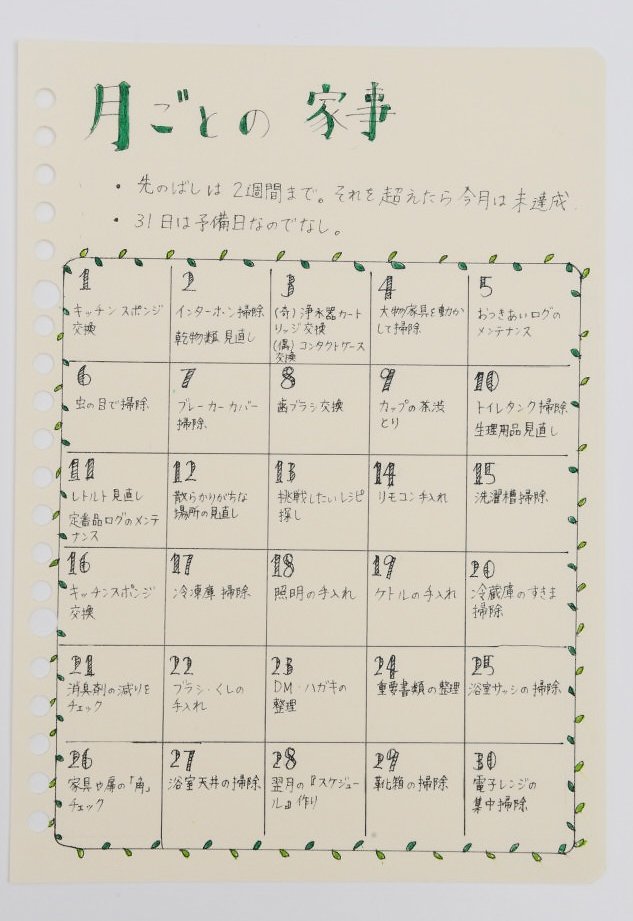 月ごとの 家事
・先のばしは2週間まで。それを超えたら今月は未達成.
・31日は予備日なのでなし。
1
キッチンスポンジ
交換
2
インターホーン掃除
乾物類見直し
3
(奇)浄水器カート
リッジ交換
(偶)コンタクトケース
交換
4
大物家具を動か
して掃除
5
おつきあいログの
メンテナンス
6
虫の目で掃除
7
ブレーカーカバー
掃除
8
歯ブラシ交換
9
カップの茶渋
とり
10
トイレタンク掃除
生理用品見直し
11
レトルト見直し
定番品ログのメンテ
ナンス
12
散らかりがちな
場所の見直し
13
挑戦したいレシピ
探し
14
リモコン手入れ
15
洗濯槽掃除
16
キッチンスポンジ
交換
17
冷凍庫掃除
18
照明の手入れ
19
ケトルの手入れ
20
冷蔵庫のすきま
掃除
21
消臭剤の減りを
チェック
22
ブラシ・くしの
手入れ
23
DM・ハガキの
整理
24
重要書類の整理
25
浴室サッシの掃除
26
家具や扉の「角」
チェック
27
浴室天井の掃除
28
翌月の『スケジュー
ル』作り
29
靴箱の掃除
30
電子レンジの
集中掃除